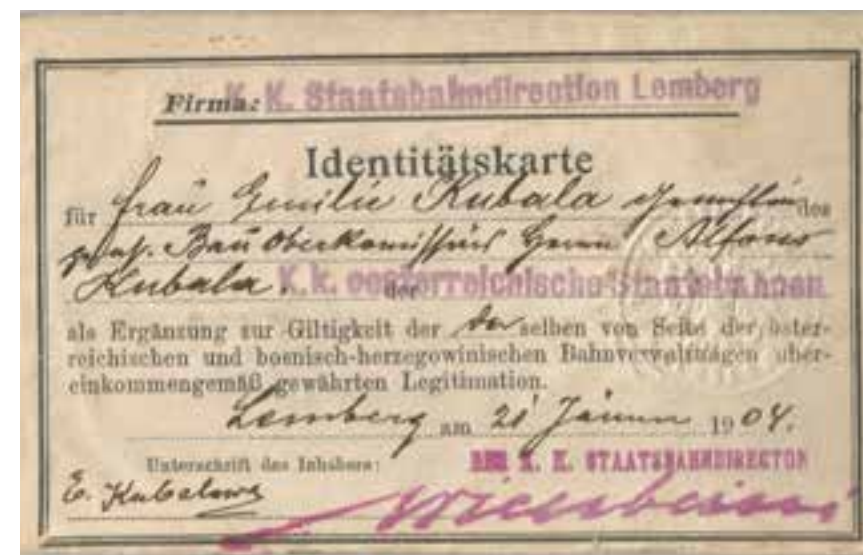 Firma: K. K. Staatsbahndirection Lemberg
Identitätskarte
für Frau Emilie Kubala Gemahlin des
Bau Oberkomissärs Herrn Alfons
Kubala. der K.k. oesterreichische Staatsbahnen
als Ergänzung zur Giltigkeit der derselben von Seite der öster-
reichischen und bosnisch-herzegowinischen Bahnverwaltungen über-
einkommengemäß gewährten Legitimation.
Lemberg am 21 Jänner 1904.
Unterschrift des Inhabers: DER K. K. STAATSBAHNDIRECTOR
E. Kubalowa